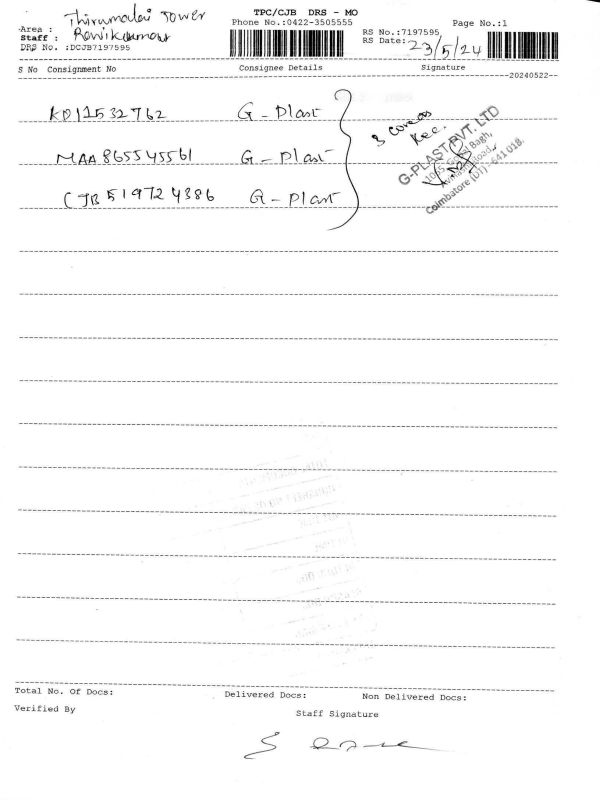 Thirumalai Tower
TPC/CJB DRS - MO
Phone No.:0422-3505555
Page No.:1
Area :
Staff : Ravikumar
DRS No. :DCJB7197595
RS No.:7197595
RS Date: 23/5/24
S No Consignment No Consignee Details Signature
20240522
KDI1532762 G-Plast
MAA865545561 G-Plast
CJB519724386 G-Plast
3 covers
Rec.
G-PLAST PVT. LTD
Bagh,
Road,
Coimbatore (DT) - 641 018.
Total No. Of Docs: Delivered Docs: Non Delivered Docs:
Verified By Staff Signature